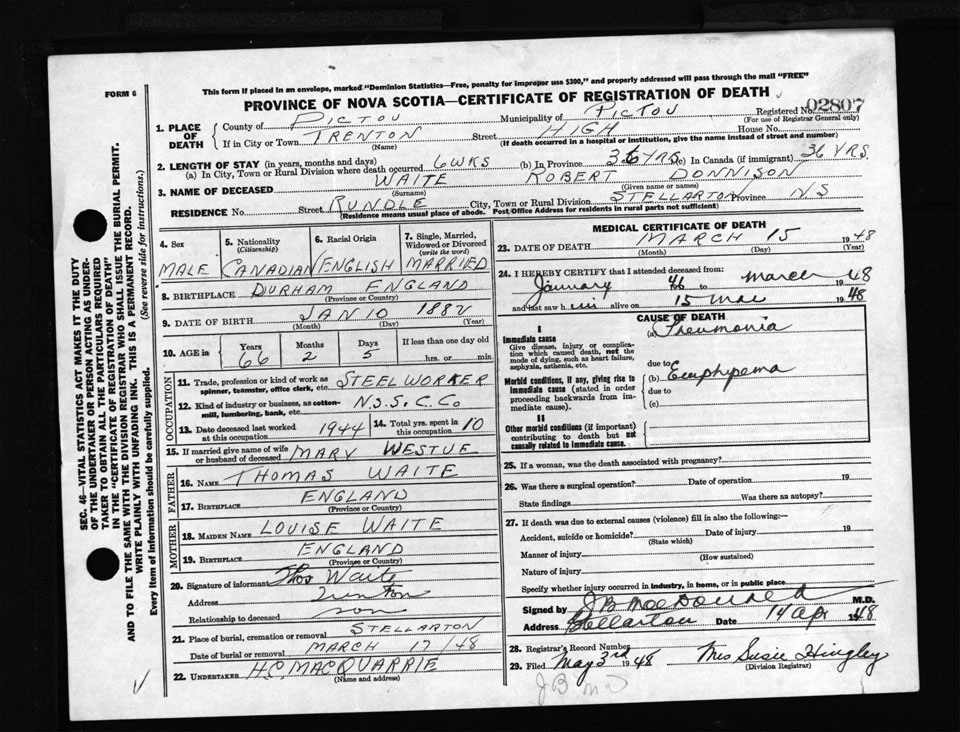 This form if placed in an envelope, marked "Dominion Statistics—Free, penalty for improper use $300," and properly addressed will pass through the mail "FREE"
FORM 6
PROVINCE OF NOVA SCOTIA—CERTIFICATE OF REGISTRATION OF DEATH
02807
1. PLACE OF DEATH
County of PICTOU Municipality of PICTOU Registered No.
(For use of Registrar General only)
If in City or Town TRENTON Street HIGH House No.
(Name) (If death occurred in a hospital or institution, give the name instead of street and number)
2. LENGTH OF STAY (in years, months and days)
(a) In City, Town or Rural Division where death occurred 6 WKS (b) In Province 36 YRS (c) In Canada (if immigrant) 36 YRS.
3. NAME OF DECEASED WAITE ROBERT DONNISON
(Surname) (Given name or names)
RESIDENCE No. Street RUNDLE City, Town or Rural Division STELLARTON Province N.S
(Residence means usual place of abode. Post Office Address for residents in rural parts not sufficient)
4. Sex
MALE
5. Nationality
(Citizenship)
CANADIAN
6. Racial Origin
ENGLISH
7. Single, Married, Widowed or Divorced
(write the word)
MARRIED
8. BIRTHPLACE DURHAM ENGLAND
(Province or Country)
9. DATE OF BIRTH JAN 10 1882
(Month) (Day) (Year)
10. AGE in Years Months Days If less than one day old
66 2 5 hrs. or min.
OCCUPATION
11. Trade, profession or kind of work as spinner, teamster, office clerk, etc. STEELWORKER
12. Kind of industry or business, as cotton-mill, lumbering, bank, etc. N.S.S.C.Co
13. Date deceased last worked at this occupation 1944
14. Total yrs. spent in this occupation 10
15. If married give name of wife or husband of deceased MARY
FATHER
16. Name THOMAS WAITE
17. Birthplace ENGLAND
(Province or Country)
MOTHER
18. Maiden Name LOUISE WAITE
19. Birthplace ENGLAND
(Province or Country)
20. Signature of informant Thos Waite
Address Trenton
Relationship to deceased son
21. Place of burial, cremation or removal STELLARTON
Date of burial or removal MARCH 17/48
22. UNDERTAKER H.C. MACQUARRIE
(Name and address)
MEDICAL CERTIFICATE OF DEATH
23. DATE OF DEATH MARCH 15 1948
(Month) (Day) (Year)
24. I HEREBY CERTIFY that I attended deceased from:
January 46 to March 1948
and last saw him alive on 15 Mar 1948
CAUSE OF DEATH
I
Immediate cause (a) Pneumonia
Give disease, injury or complication which caused death, not the mode of dying, such as heart failure, asphyxia, asthenia, etc.
due to
Morbid conditions, if any, giving rise to immediate cause (stated in order proceeding backwards from immediate cause).
(b)
due to
(c)
II
Other morbid conditions (if important) contributing to death but not causally related to immediate cause.
25. If a woman, was the death associated with pregnancy?
26. Was there a surgical operation? Date of operation 19
State findings Was there an autopsy?
27. If death was due to external causes (violence) fill in also the following:—
Accident, suicide or homicide? Date of injury 19
(State which)
Manner of injury
(How sustained)
Nature of injury
Specify whether injury occurred in industry, in home, or in public place
Signed by J B MacDonald M.D.
Address Stellarton Date 14 Apr 1948
28. Registrar's Record Number
29. Filed May 3rd 1948 Mrs Susie Hingley
(Division Registrar)
J B M
SEC. 46—VITAL STATISTICS ACT MAKES IT THE DUTY
OF THE UNDERTAKER OR PERSON ACTING AS UNDER-
TAKER TO OBTAIN ALL THE PARTICULARS REQUIRED
IN THE "CERTIFICATE OF REGISTRATION OF DEATH"
AND TO FILE THE SAME WITH THE DIVISION REGISTRAR WHO SHALL ISSUE THE BURIAL PERMIT.
WRITE PLAINLY WITH UNFADING INK. THIS IS A PERMANENT RECORD.
Every item of information should be carefully supplied. (See reverse side for instructions.)